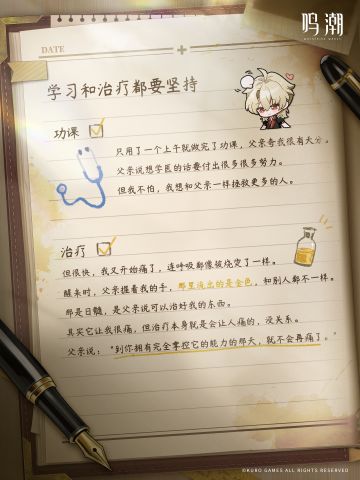 鸣潮
WUTHERING WAVES
DATE
学习和治疗都要坚持
功课
只用了一个上午就做完了功课，父亲夸我很有天分。
父亲说想学医的话要付出很多很多努力。
但我不怕，我想和父亲一样拯救更多的人。
治疗
但很快，我又开始痛了，连呼吸都像被烧穿了一样。
醒来时，父亲握着我的手，那里流出的是金色，和别人都不一样。
那是日髓，是父亲说可以治好我的东西。
其实它让我很痛，但治疗本身就是会让人痛的，没关系。
父亲说：“到你拥有完全掌控它的能力的那天，就不会再痛了。”
©KURO GAMES.ALL RIGHTS RESERVED